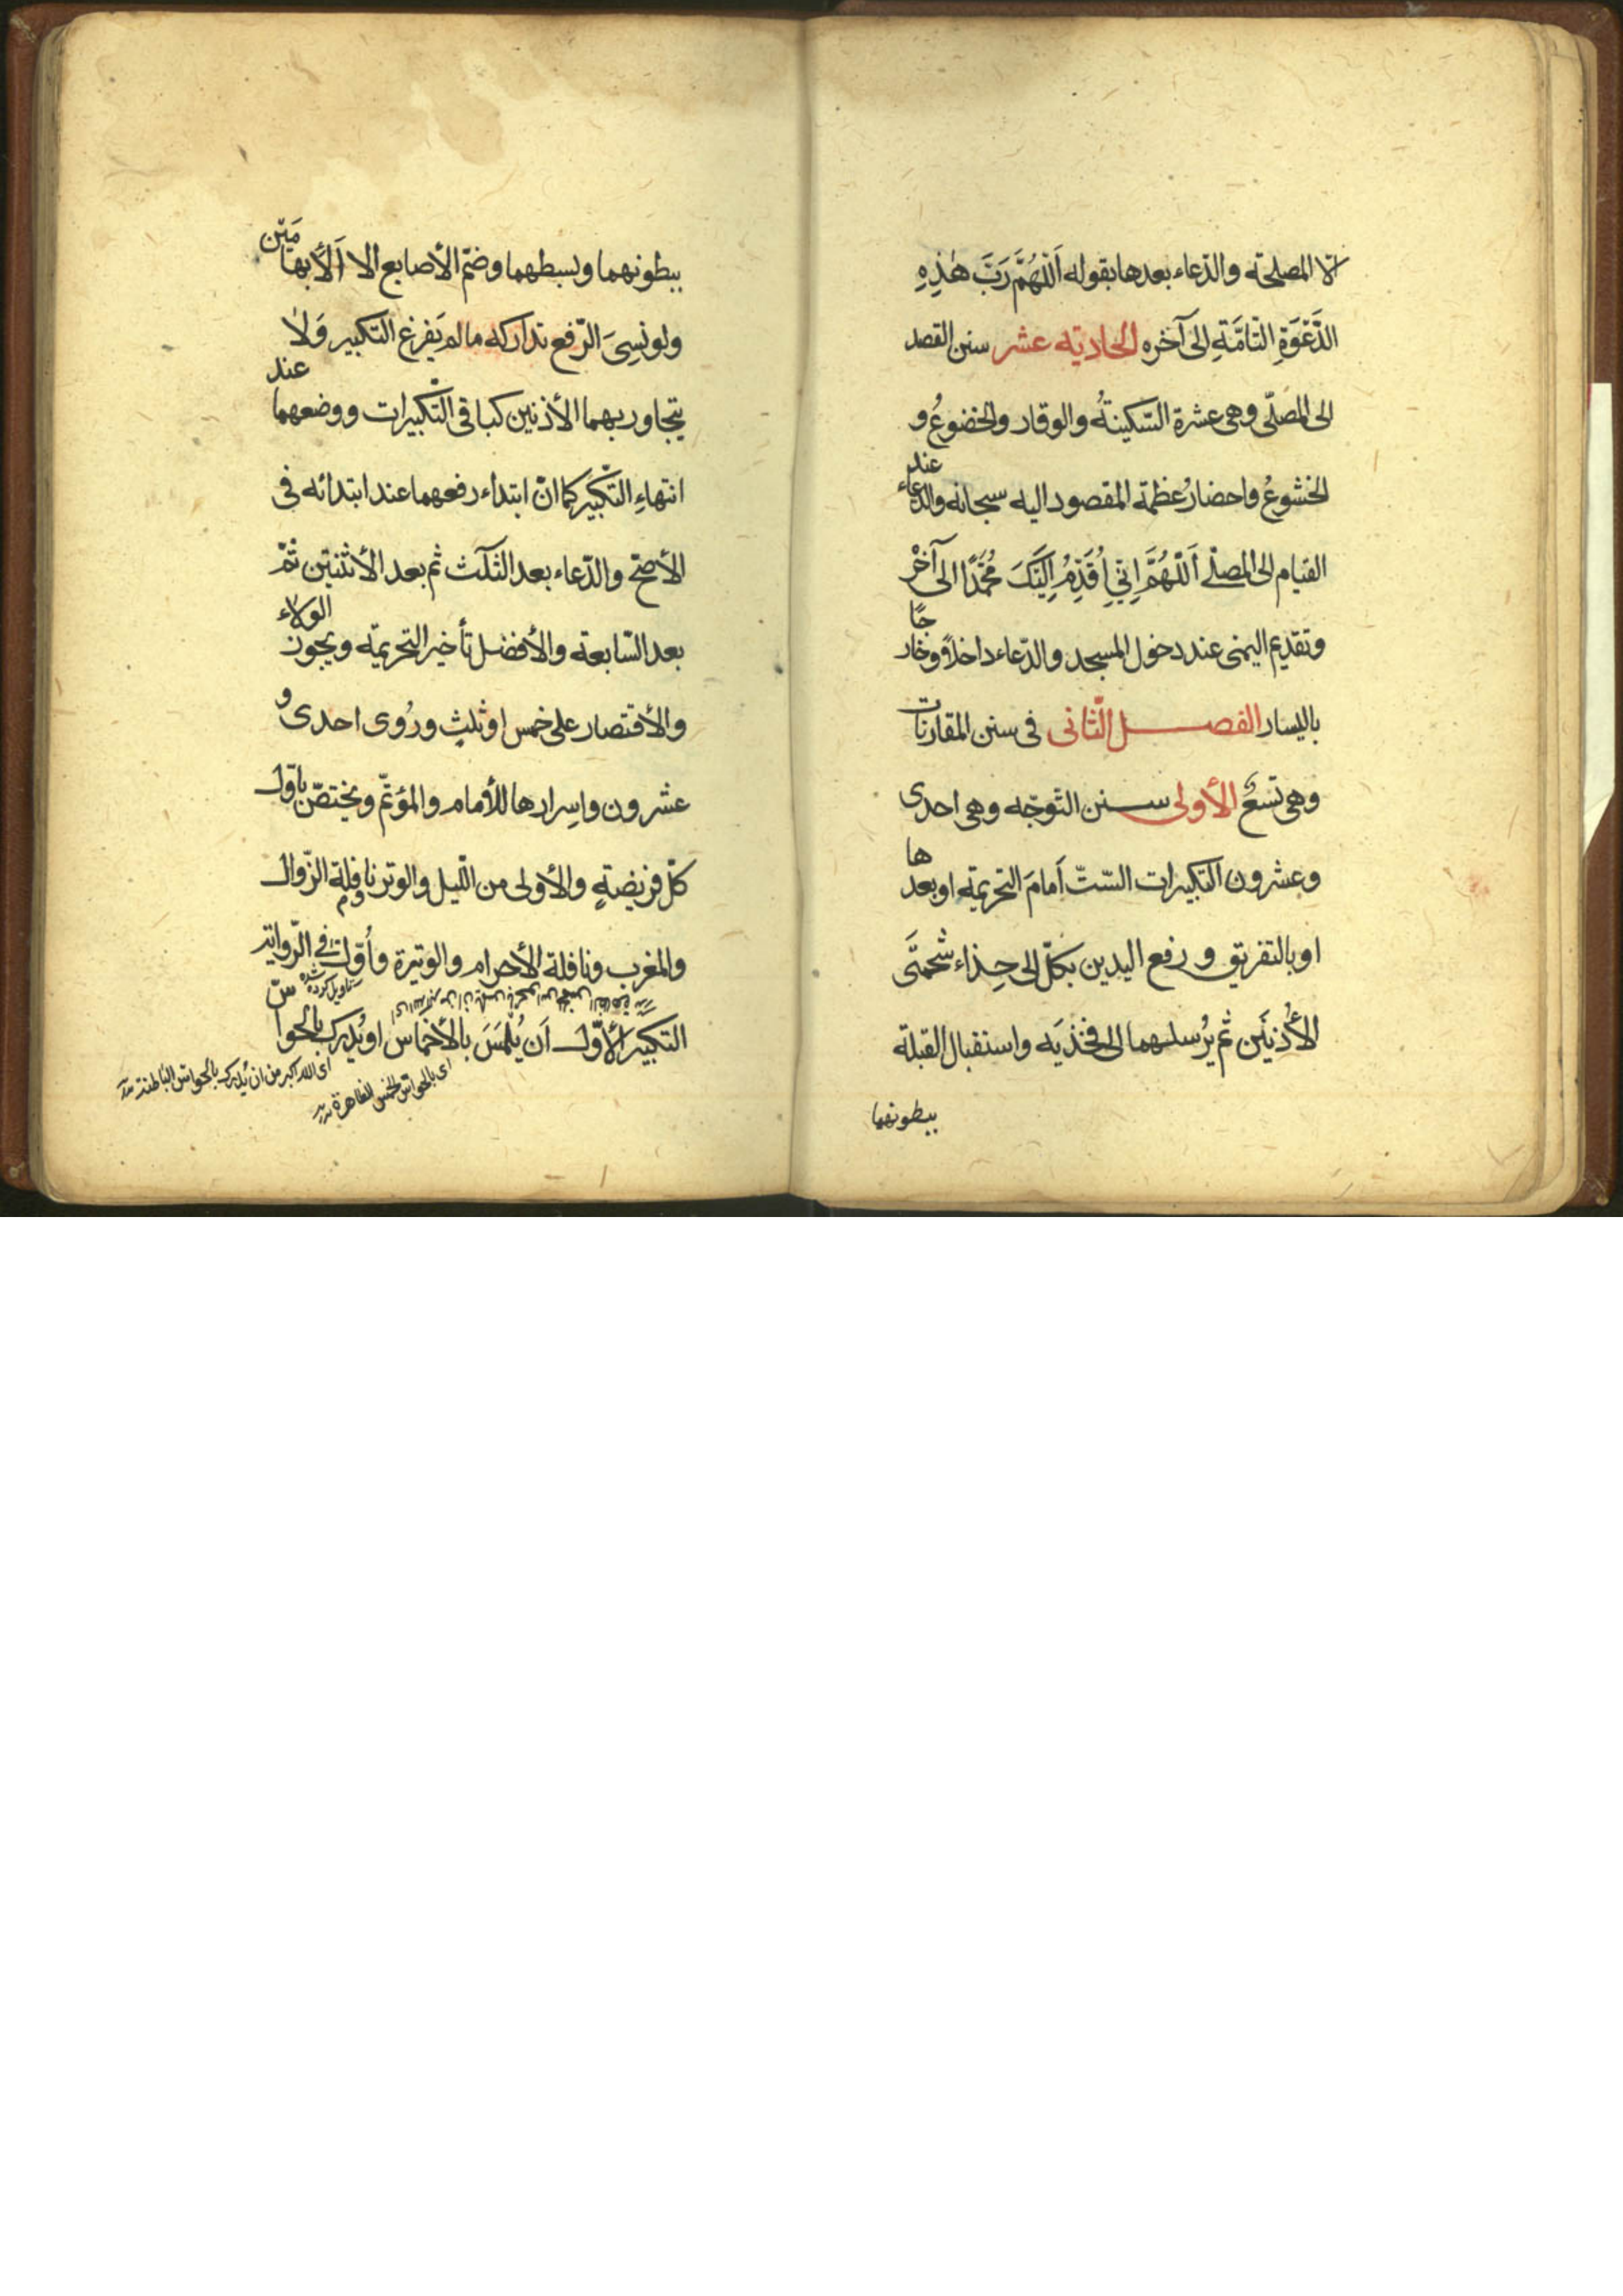 الّا لمصلحة والدّعاء بعدها بقوله اَللّهُمَّ رَبَّ هٰذِهِ
الدَّعْوَةِ التّامَّةِ الى آخره الحادية عشر سنن القصد
الى المصلّى وهى عشرة السّكينةُ والوقار والخضوعُ و
الخشوعُ واحضارُ عظمة المقصود اليه سبحانه والدعاء عند
القيام الى المصلّى اَللّهُمَّ اِنّى اُقَدِّمُ اِلَيْكَ مُحَمَّدًا الى آخرْ
وتقديم اليمنى عند دخول المسجد والدّعاء داخلاً وخارجًا
باليسار الفصل الثّانى فى سنن المقارنات
وهى تسعٌ الأولى سنن التّوجّه وهى احدى
وعشرون التكبيرات السّتّ اَمامَ التحريمة او بعدها
او بالتفريق ورفع اليدين بكلّ الى حِذاء شحمتَى
الأُذنَين ثم يُرسلهما الى فخذَيه واستقبال القبلة
ببطونهما
ببطونهما وبسطهما وضمّ الأصابع الا اَلأبهامَين
ولو نسِىَ الرّفع تداركه مالم يَفرغ التكبير وَلا
يتجاوز بهما الأذنين كباقى التّكبيرات ووضعهما عند
انتهاءِ التّكبير كما انّ ابتداء رفعهما عند ابتدائه فى
الأصحّ والدّعاء بعد الثلث ثم بعد الأثنتين ثمّ
بعد السّابعة والأفضل تأخير التحريمة ويجوز الولاء
والأقتصار على خمس او ثلثٍ ورُوى احدى و
عشرون واسِرارها للأمام والمؤتمّ ويختصّ باوّل
كلّ فريضةٍ والأولى من اللّيل والوتر ونافلة الزّوال
والمغرب ونافلة الأحرام والوتيرة واُوّلت فى الرّواية
تاويل كرده شده
التكبير الأوّل اَن يُلْمَسَ بالأخماس او يُدرك بالحواسّ
اى الله اكبر من ان يُدرك بالحواسّ الباطنة
اى بالحواسّ الخمس الظاهرة